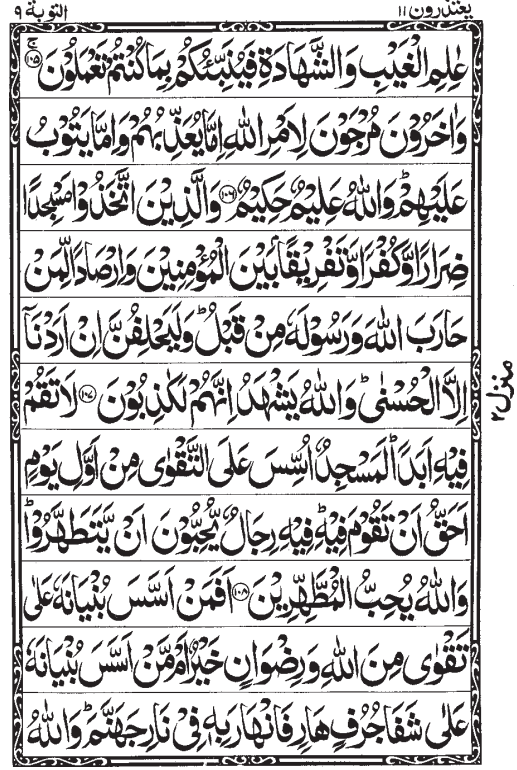 يعتذرون ١١
التوبة ٩
عٰلِمِ الْغَيْبِ وَالشَّهَادَةِ فَيُنَبِّئُكُمْ بِمَا كُنْتُمْ تَعْمَلُوْنَ ۚ ۝۱۰۵
وَاٰخَرُوْنَ مُرْجَوْنَ لِاَمْرِ اللّٰهِ اِمَّا يُعَذِّبُهُمْ وَاِمَّا يَتُوْبُ
عَلَيْهِمْ ؕ وَاللّٰهُ عَلِيْمٌ حَكِيْمٌ ۝۱۰۶ وَالَّذِيْنَ اتَّخَذُوْا مَسْجِدًا
ضِرَارًا وَّكُفْرًا وَّتَفْرِيْقًۢا بَيْنَ الْمُؤْمِنِيْنَ وَاِرْصَادًا لِّمَنْ
حَارَبَ اللّٰهَ وَرَسُوْلَهٗ مِنْ قَبْلُ ؕ وَلَيَحْلِفُنَّ اِنْ اَرَدْنَاۤ
اِلَّا الْحُسْنٰى ؕ وَاللّٰهُ يَشْهَدُ اِنَّهُمْ لَكٰذِبُوْنَ ۝۱۰۷ لَا تَقُمْ
فِيْهِ اَبَدًا ؕ لَمَسْجِدٌ اُسِّسَ عَلَى التَّقْوٰى مِنْ اَوَّلِ يَوْمٍ
اَحَقُّ اَنْ تَقُوْمَ فِيْهِ ؕ فِيْهِ رِجَالٌ يُّحِبُّوْنَ اَنْ يَّتَطَهَّرُوْا ؕ
وَاللّٰهُ يُحِبُّ الْمُطَّهِّرِيْنَ ۝۱۰۸ اَفَمَنْ اَسَّسَ بُنْيَانَهٗ عَلٰى
تَقْوٰى مِنَ اللّٰهِ وَرِضْوَانٍ خَيْرٌ اَمْ مَّنْ اَسَّسَ بُنْيَانَهٗ
عَلٰى شَفَا جُرُفٍ هَارٍ فَانْهَارَ بِهٖ فِىْ نَارِ جَهَنَّمَ ؕ وَاللّٰهُ
منزل ٢